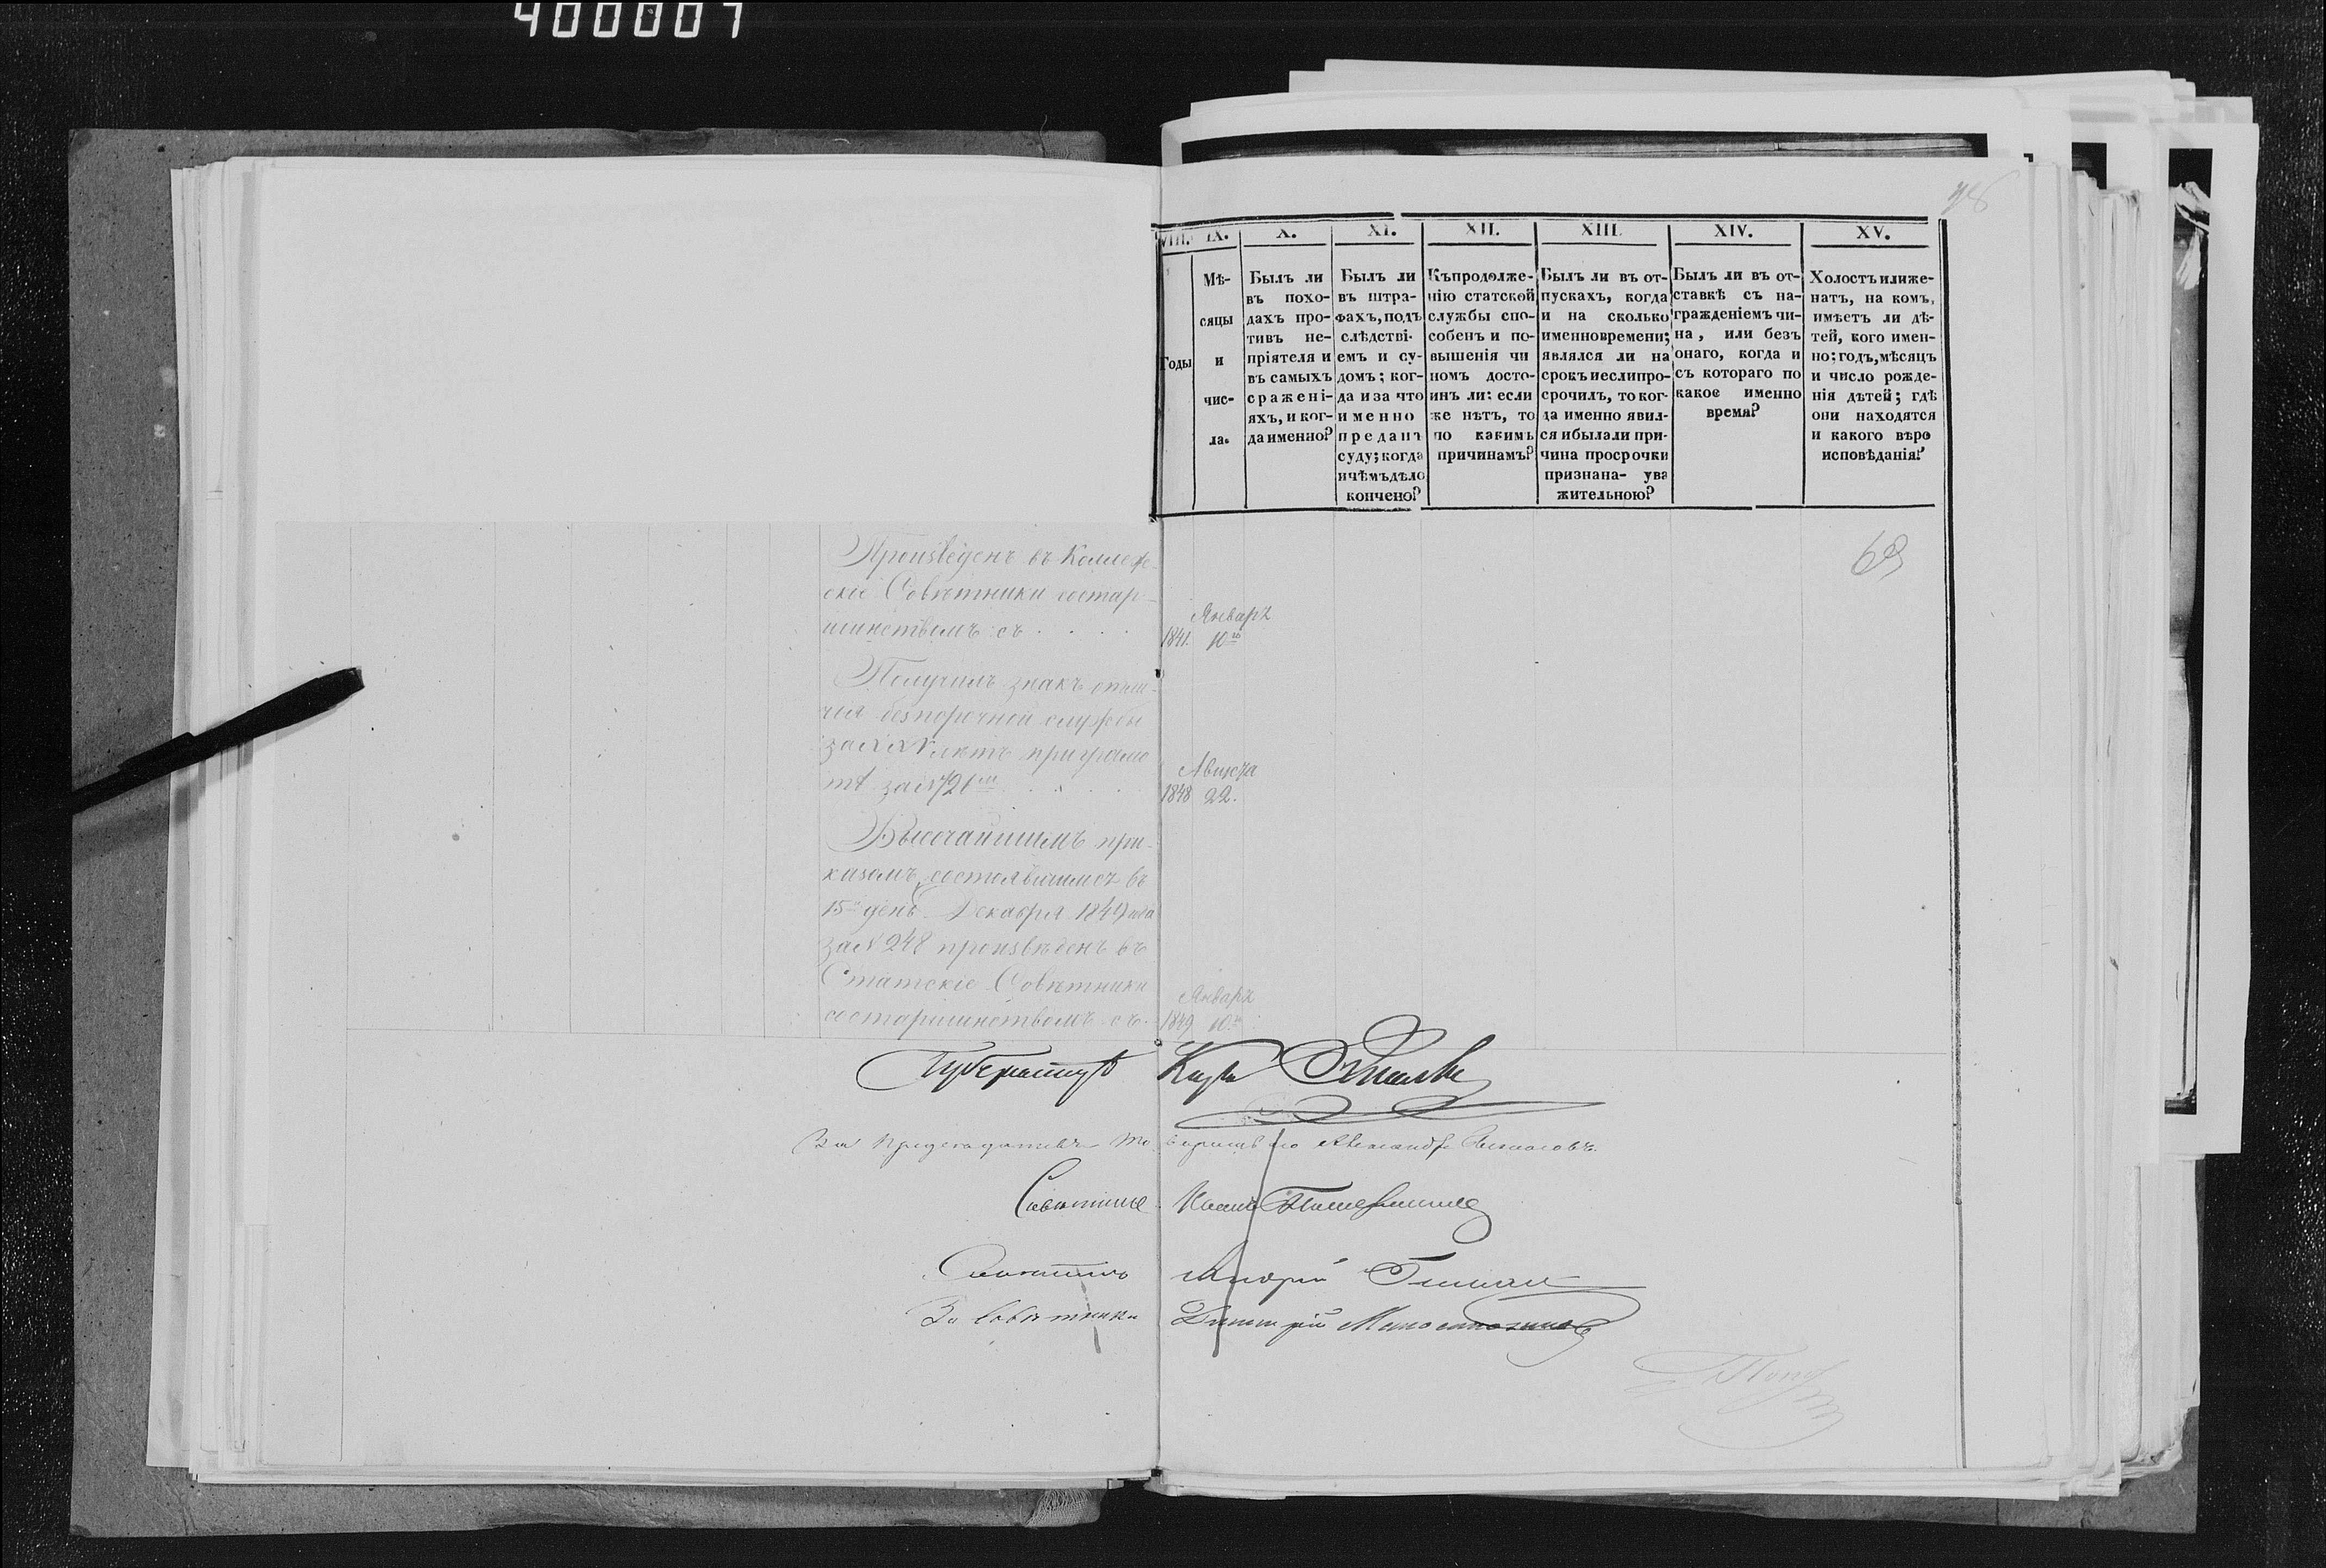 400007
VIII. IX. X. XI. XII. XIII. XIV. XV.
Годы
Мѣ-
сяцы
и
чис-
ла.
Былъ ли
въ похо-
дахъ про-
тивъ не-
пріятеля и
въ самыхъ
сражені-
яхъ, и ког-
да именно?
Былъ ли
въ штра-
фахъ, подъ
слѣдстві-
емъ и су-
домъ; ког-
да и за что
именно
преданъ
суду; когда
и чѣмъ дѣло
кончено?
Къ продолже-
нію статской
службы спо-
собенъ и по-
вышенія чи
номъ досто-
инъ ли: если
же нѣтъ, то
по какимъ
причинамъ?
Былъ ли въ от-
пускахъ, когда
и на сколько
именно времени;
являлся ли на
срокъ и если про-
срочилъ, то ког-
да именно явил-
ся и была ли при-
чина просрочки
признана- ува
жительною?
Былъ ли въ от-
ставкѣ съ на-
гражденіемъ чи-
на, или безъ
онаго, когда и
съ котораго по
какое именно
время?
Холостъ или же-
натъ, на комъ,
имѣетъ ли дѣ-
тей, кого имен-
но; годъ, мѣсяцъ
и число рожде-
нія дѣтей; гдѣ
они находятся
и какого вѣро
исповѣданія?
Произведенъ въ Коллеж-
скіе Совѣтники со стар-
шинствомъ съ . . . . Январь 1841. 10го
Получилъ знакъ отли-
чія безпорочной службы
за XXV лѣтъ при грамо
тѣ за № 721м . . . Августа 1848 22.
Высочайшимъ при-
казомъ, состоявшимся въ
15й день Декабря 1849 года
за № 248 произвѣденъ въ
Статскіе Совѣтники
со старшинствомъ съ. Январь 1849 10го
Губернаторъ
За Предсѣдателя То варищъ его Александръ
Совѣтникъ
Совѣтникъ Андрей
За Совѣтника Дмитрій